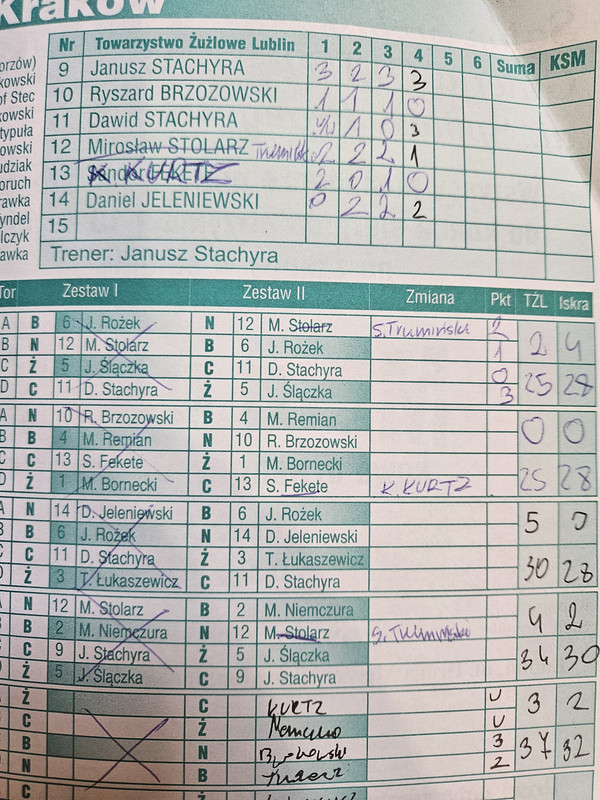 Kraków
Nr Towarzystwo Żużlowe Lublin 1 2 3 4 5 6 Suma KSM
9 Janusz STACHYRA 3 2 3 3
10 Ryszard BRZOZOWSKI 1 1 1 0
11 Dawid STACHYRA 1 0 3
12 Mirosław STOLARZ 2 2 2 1
13 K. KURTZ 2 0 1 0
14 Daniel JELENIEWSKI 0 2 2 2
15
Trener: Janusz Stachyra
Tor Zestaw I Zestaw II Zmiana Pkt TŻL Iskra
A B 6 J. Rożek N 12 M. Stolarz S. Trumiński 2
B N 12 M. Stolarz B 6 J. Rożek 1 2 4
C Ż 5 J. Ślączka C 11 D. Stachyra 0
D C 11 D. Stachyra Ż 5 J. Ślączka 3 25 28
A N 10 R. Brzozowski B 4 M. Remian
B B 4 M. Remian N 10 R. Brzozowski 0 0
C C 13 S. Fekete Ż 1 M. Bornecki
D Ż 1 M. Bornecki C 13 S. Fekete K. KURTZ 25 28
A N 14 D. Jeleniewski B 6 J. Rożek
B B 6 J. Rożek N 14 D. Jeleniewski 5 0
C C 11 D. Stachyra Ż 3 T. Łukaszewicz
D Ż 3 T. Łukaszewicz C 11 D. Stachyra 30 28
A N 12 M. Stolarz B 2 M. Niemczura
B B 2 M. Niemczura N 12 M. Stolarz S. Trumiński 4 2
C C 9 J. Stachyra Ż 5 J. Ślączka
D Ż 5 J. Ślączka C 9 J. Stachyra 34 30
Ż C KURTZ U 3 2
C Ż U
B N Brzozowski 3 37 32
N B 2
C